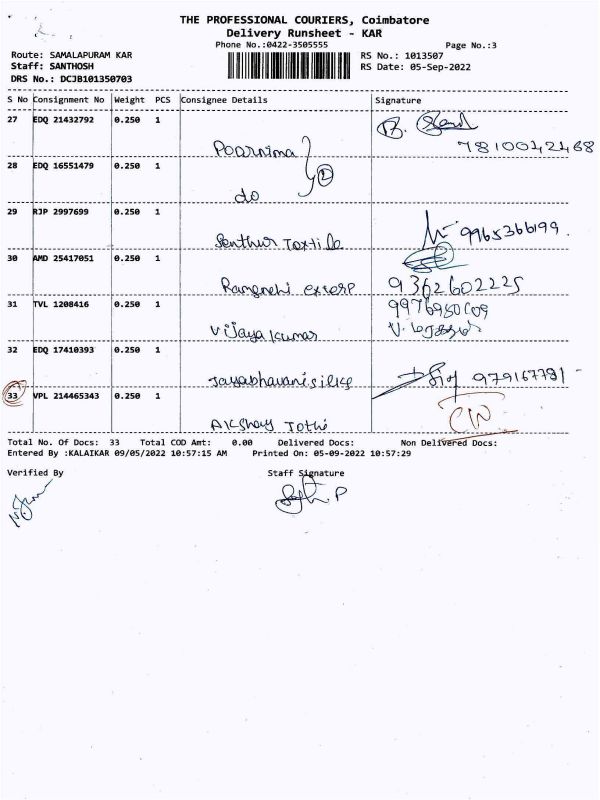 THE PROFESSIONAL COURIERS, Coimbatore
Delivery Runsheet - KAR
Phone No.:0422-3505555 Page No.:3
Route: SAMALAPURAM KAR RS No.: 1013507
Staff: SANTHOSH RS Date: 05-Sep-2022
DRS No.: DCJB101350703
S No Consignment No Weight PCS Consignee Details Signature
27 EDQ 21432792 0.250 1
Poornima 7810042468
28 EDQ 16551479 0.250 1
do 2
29 RJP 2997699 0.250 1
Senthur Textile 9965366199.
30 AMD 25417051 0.250 1
9362602225
31 TVL 1208416 0.250 1
Vijaya kumar
32 EDQ 17410393 0.250 1
Jayabhavani silks
33 VPL 214465343 0.250 1
Akshay Jothi
Total No. Of Docs: 33 Total COD Amt: 0.00 Delivered Docs: Non Delivered Docs:
Entered By :KALAIKAR 09/05/2022 10:57:15 AM Printed On: 05-09-2022 10:57:29
Verified By Staff Signature